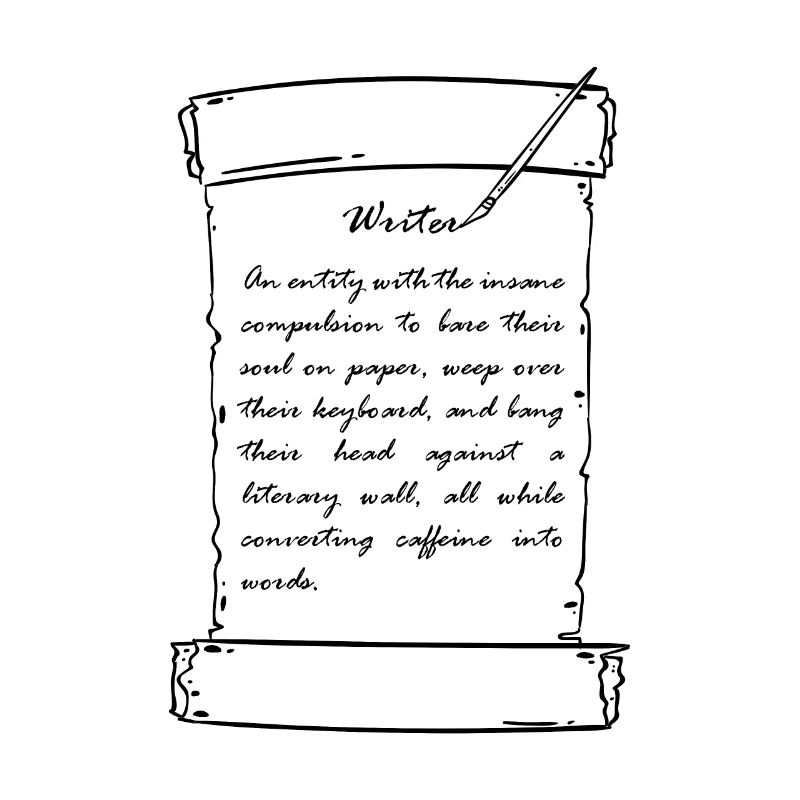 Writer
An entity with the insane
compulsion to bare their
soul on paper, weep over
their keyboard, and bang
their head against a
literary wall, all while
converting caffeine into
words.